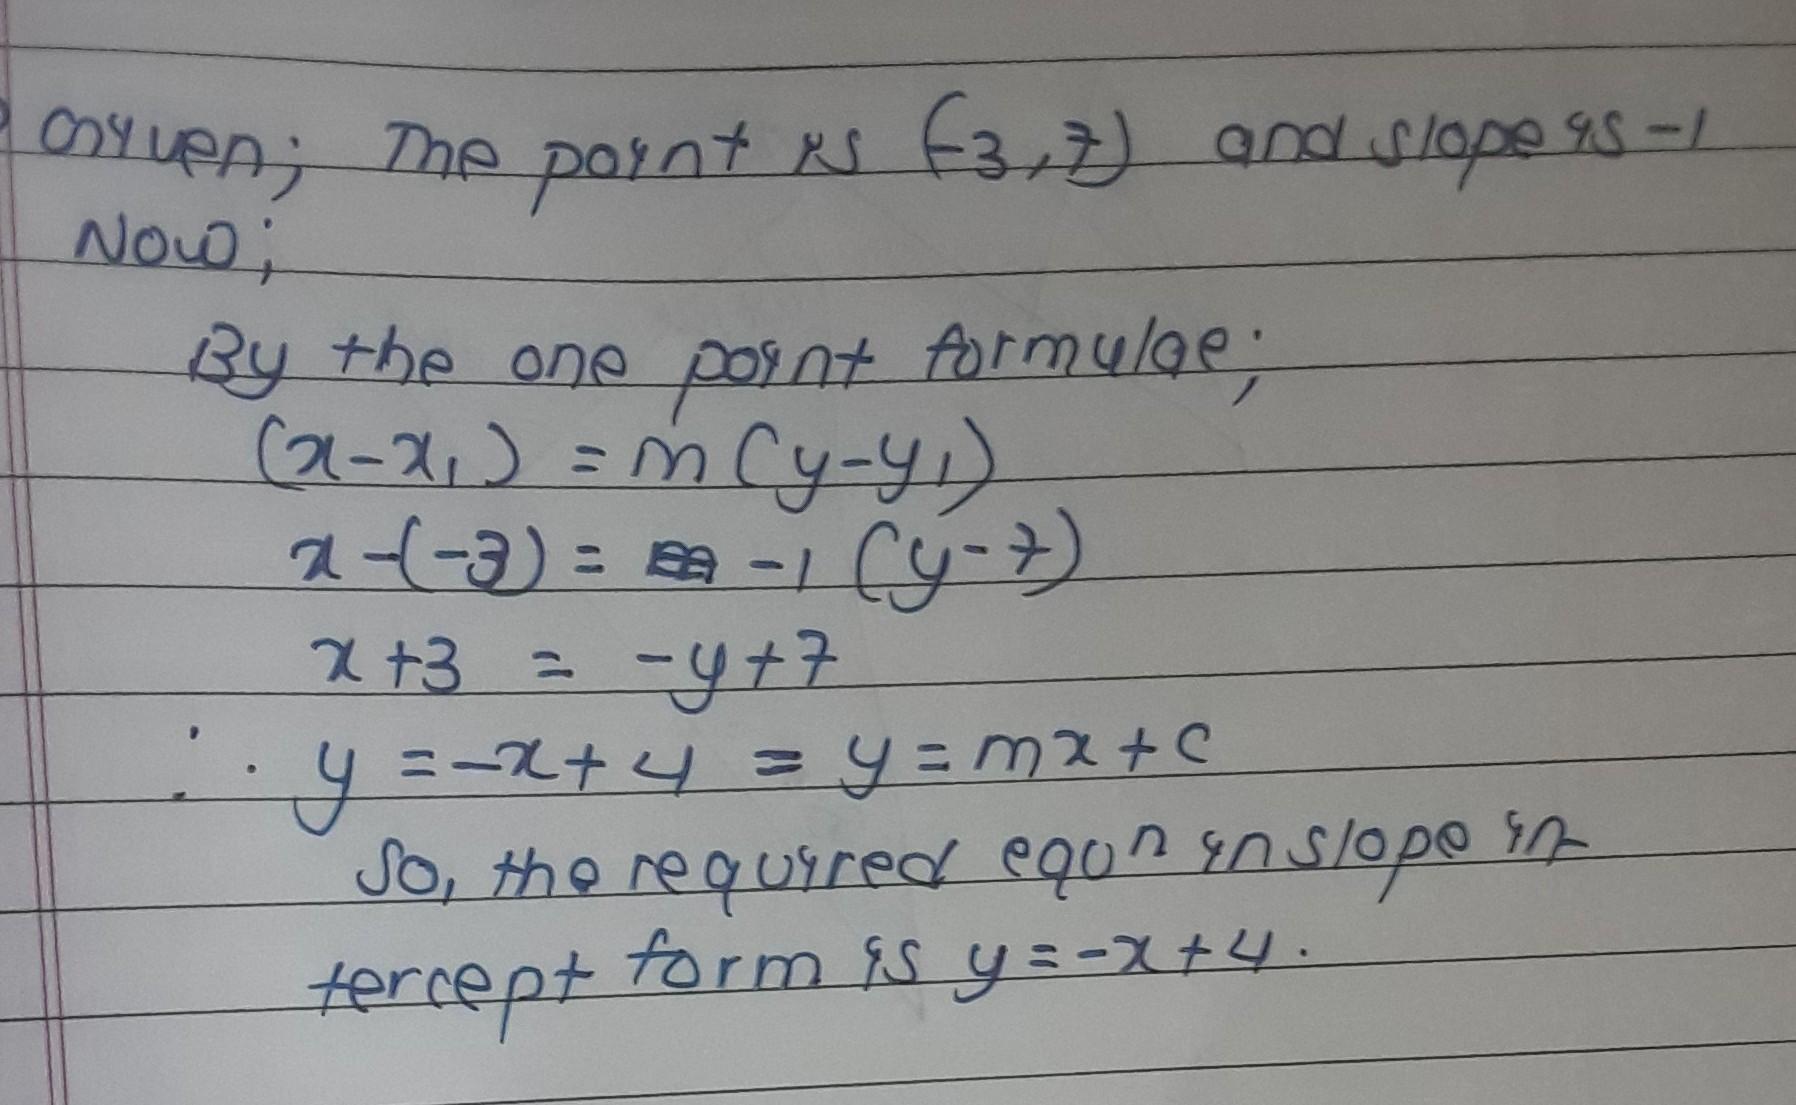 Given; The point is (-3,7) and slope is -1
Now;
By the one point formulae;
(x-x₁) = m(y-y₁)
x-(-3) = -1 (y-7)
x+3 = -y+7
∴ y=-x+4 = y=mx+c
So, the required eqon in slope in
tercept form is y=-x+4.